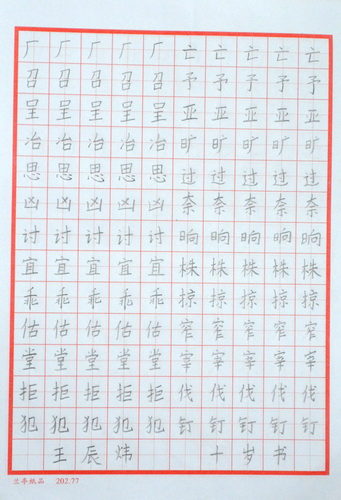 厂厂厂厂厂亡亡亡亡亡
召召召召召予予予予予
呈呈呈呈呈亚亚亚亚亚
冶冶冶冶冶旷旷旷旷旷
思思思思思过过过过过
凶凶凶凶凶奈奈奈奈奈
讨讨讨讨讨晌晌晌晌晌
宜宜宜宜宜株株株株株
乖乖乖乖乖掠掠掠掠掠
估估估估估窄窄窄窄窄
堂堂堂堂堂宰宰宰宰宰
拒拒拒拒拒伐伐伐伐伐
犯犯犯犯犯钉钉钉钉钉
王辰炜十岁书
兰亭纸品 202.77